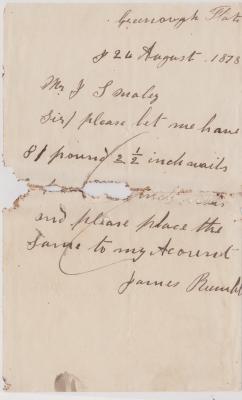 Greenough Flats
24 August 1878
Mr J S Maley
Sir/ please let me have
81 pound 2 1/2 inch nails
inch
and please place the
same to my Acount
James